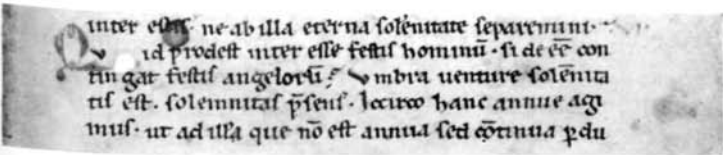 inter estis· ne ab illa eterna solẽnitate separemini·
Quid prodest inter esse festis hominũ· si deeẽ con
tingat festis angelorũ? Vmbra uenture solẽnita
tis est· solemnitas p̃sens· Iccirco hanc annue agi
mus· ut ad illã que nõ est annua sed cõtinua ꝑdu